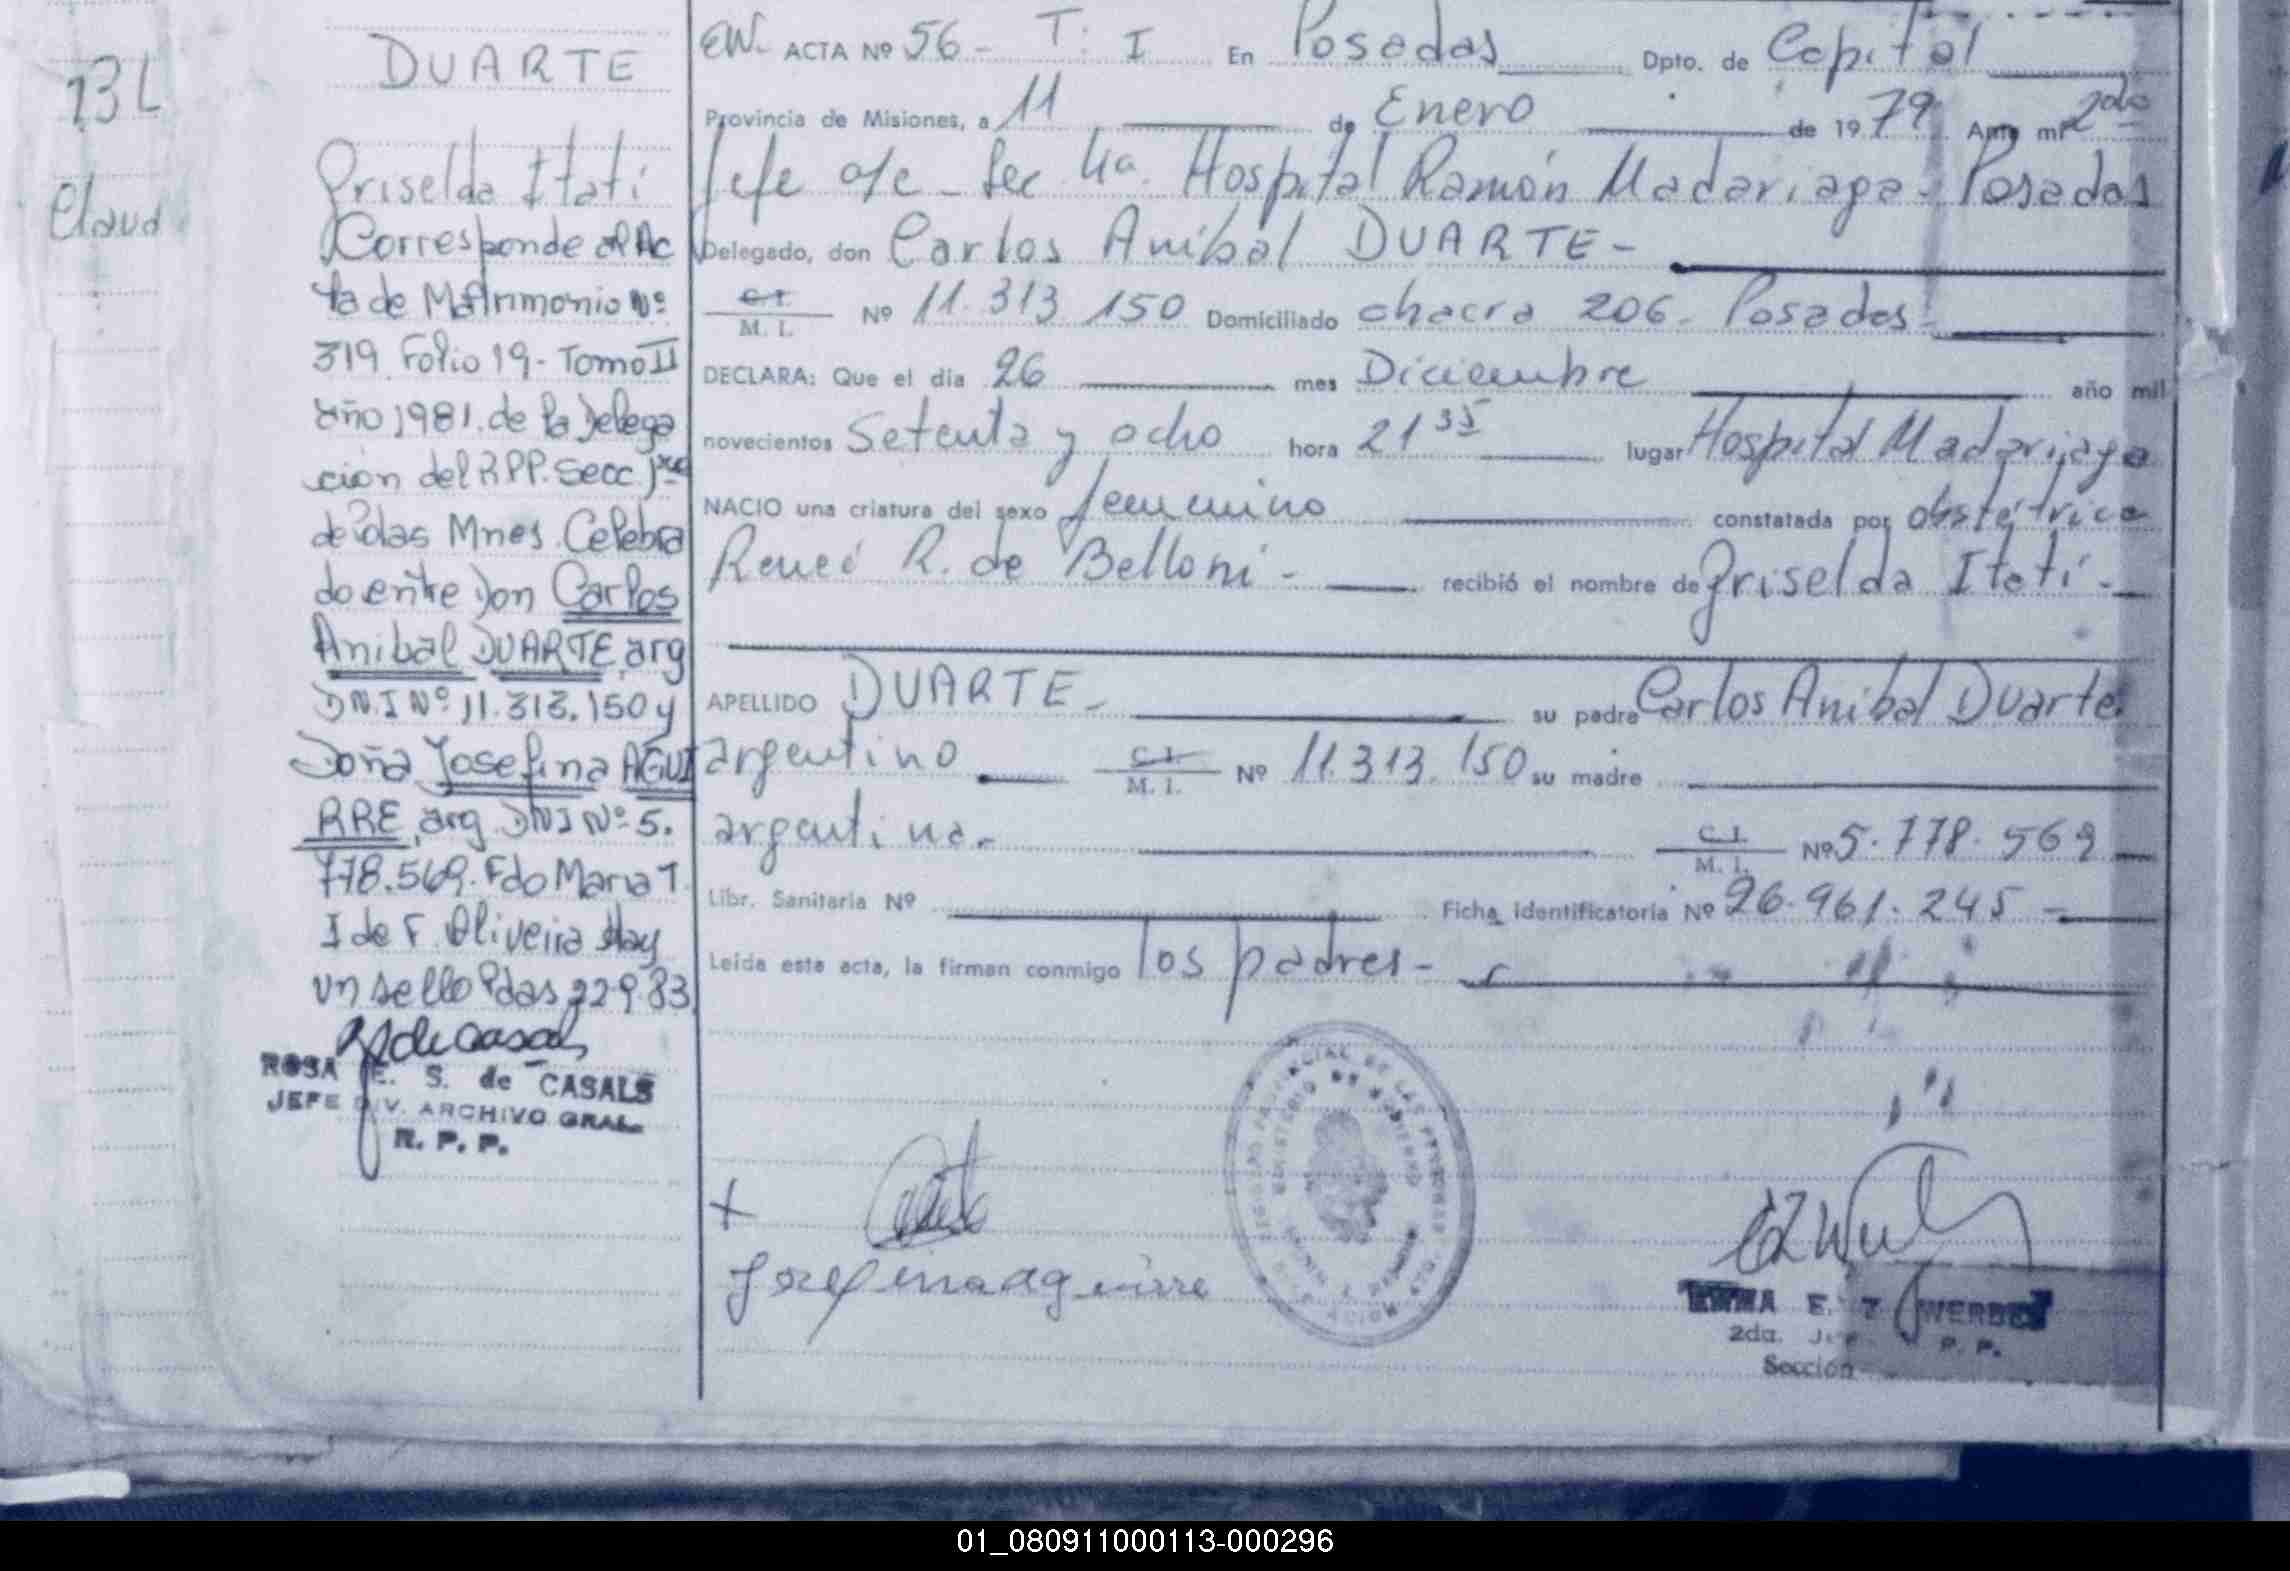 13L
Claud
DUARTE
Griselda Itatí
Corresponde al Ac
ta de Matrimonio Nº
319 Folio 19- Tomo II
año 1981. de la Delega
ción del RPP. Secc. 1ra
de Pdas Mnes. Celebra
do entre Don Carlos
Anibal DUARTE, arg
DN.I Nº 11.313.150 y
Doña Josefina AGUI
RRE, arg. DNI Nº 5.
778.569. Fdo Maria T.
I de F. Oliveira Hay
un sello Pdas 22-9-83
ROSA E. S. de CASALS
JEFE DIV. ARCHIVO GRAL.
R. P. P.
EW. ACTA Nº 56- T: I En Posadas Dpto. de Capital
Provincia de Misiones, a 11 de Enero de 1979 Ante mí 2do
Jefe a/c - Sec 4a. Hospital Ramón Madariaga - Posadas
Delegado, don Carlos Aníbal DUARTE -
C. I. M. I. Nº 11.313.150 Domiciliado chacra 206- Posadas-
DECLARA: Que el día 26 mes Diciembre año mil
novecientos Setenta y ocho hora 21 35 lugar Hospital Madariaga
NACIO una criatura del sexo femenino constatada por obstétrica
Reneé R. de Belloni - recibió el nombre de Griselda Itatí -
APELLIDO DUARTE - su padre Carlos Anibal Duarte.
argentino C. I. M. I. Nº 11.313.150 su madre
argentina.- C. I. M. I. Nº 5.778.569
Libr. Sanitaria Nº Ficha identificatoria Nº 26.961.245 -
Leída esta acta, la firman conmigo los padres -
+
Josefina aguirre
REGISTRO PROVINCIAL DE LAS PERSONAS
MINISTERIO DE GOBIERNO
E. Z WERBE
2da. P. P.
Sección
01_080911000113-000296